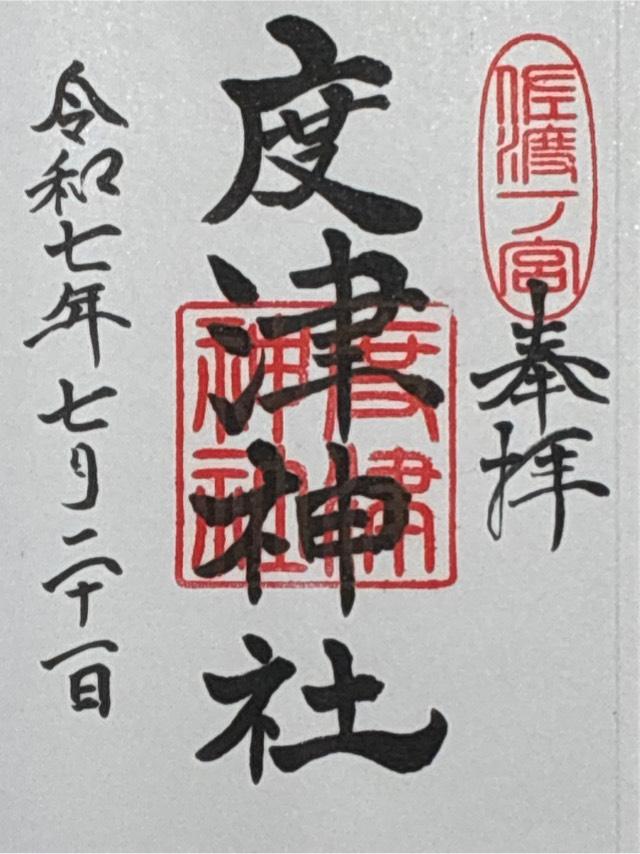 佐渡一ノ宮
奉拝
度津神社
度津神社
令和七年七月二十一日